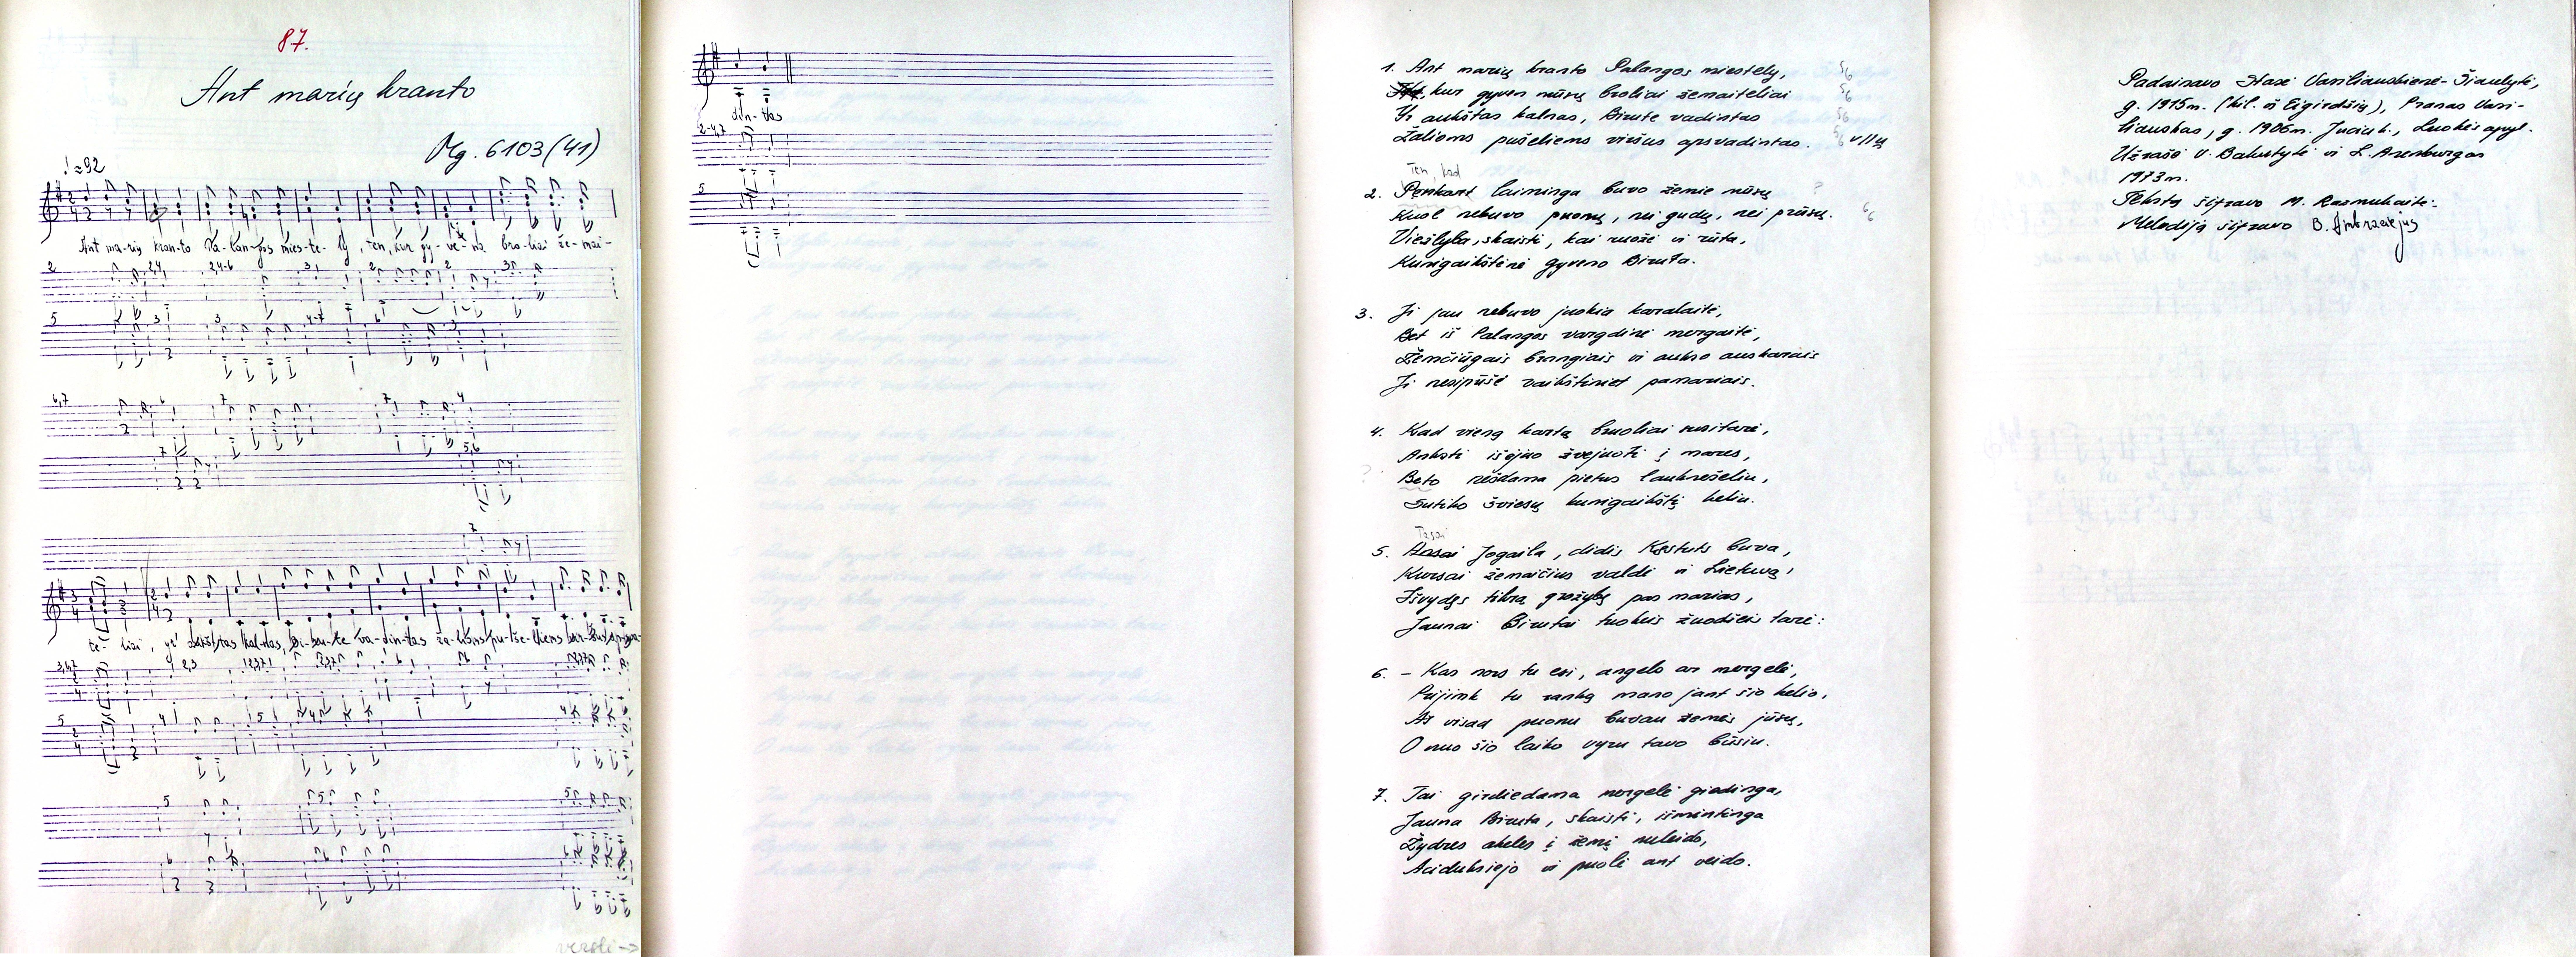 87.
Ant marių kranto
Mg. 6103(41)
♩≈92
Ant ma-rių kran-to Pa-lan-gos mies-te-ly, ten, kur gy-ve-na bro-liai že-mai-
2 2,4 2,4-6 3 2 2 3
5 2 3 3 4-7 6 3
6,7 6 7 7 4
7 5,6
7
te-liai, yr' aukš-tas kal-nas, Bi-ru-te va-din-tas ža-lioms pu-še-liems
5
5
6
versti →
din-tas
2-4,7
5
1. Ant marių kranto Palangos miestely,
kur gyven mūsų broliai žemaiteliai
Yr aukštas kalnas, Birute vadintas
Žalioms pušeliems viršus apsvadintas.
Ten, kad
2. Penkart laiminga buvo žemie mūsų
Kuol nebuvo puonų, nei gudų, nei prūsų.
Viežlyba, skaisti, kai ruožė ir rūta,
Kunigaikštienė gyveno Biruta.
3. Ji jau nebuvo juokia karalaitė,
Bet iš Palangos vargdienė mergaitė,
Žemčiūgais brangiais ir aukso auskarais
Ji nesipūšė vaikštiniet pamariais.
4. Kad vieną kartą bruoliai susitarė,
Anksti išejuo žvejuoti į mares,
Beto nešdama pietus laukrešeliu,
Sutiko šviesų kunigaikštį keliu.
Tasai
5. Jogaila, didis Kęstuts buva,
Kursai žemaičius valdė ir Lietuvą,
Išvydęs tikrą grožybę pas marias,
Jaunai Birutai tuokeis žuodžeis tarė:
6. – Kas nors tu esi, angelo ar mergelė,
Prijimk tu ranką mano jant šio kelio,
Aš visad puonu buvau žemės jūsų,
O nuo šio laiko vyru tavo būsiu.
7. Tai girdiedama mergelė giedinga,
Jauna Biruta, skaisti, išmintinga
Žydres akeles į žemę nuleido,
Aciduksiejo ir puolė ant veido.
Padainavo Stasė Vasiliauskienė-Šiaulytė,
g. 1915m. (kil. iš Eigirdžių), Pranas Vasi-
liauskas, g. 1906m. Luokės apyl.
Užrašė V. Bakutytė ir L. Arenburgas
1973m.
Tekstą šifravo M. Razmukaitė.
Melodiją šifravo B. Ambraziejus